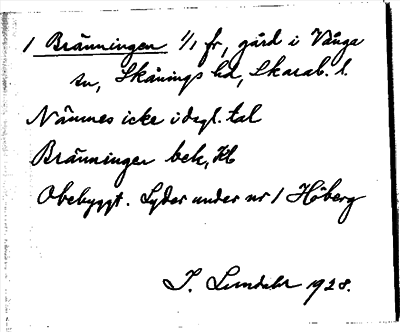 1 Bränningen 1/1 fr, gård i Vånga
sn, Skånings hd, Skarab. l.
Nämnes icke i dagl. tal
Bränningen bek, Hb
Obebyggt. Lyder under nr 1 Höberg
J. Lundahl 1928.